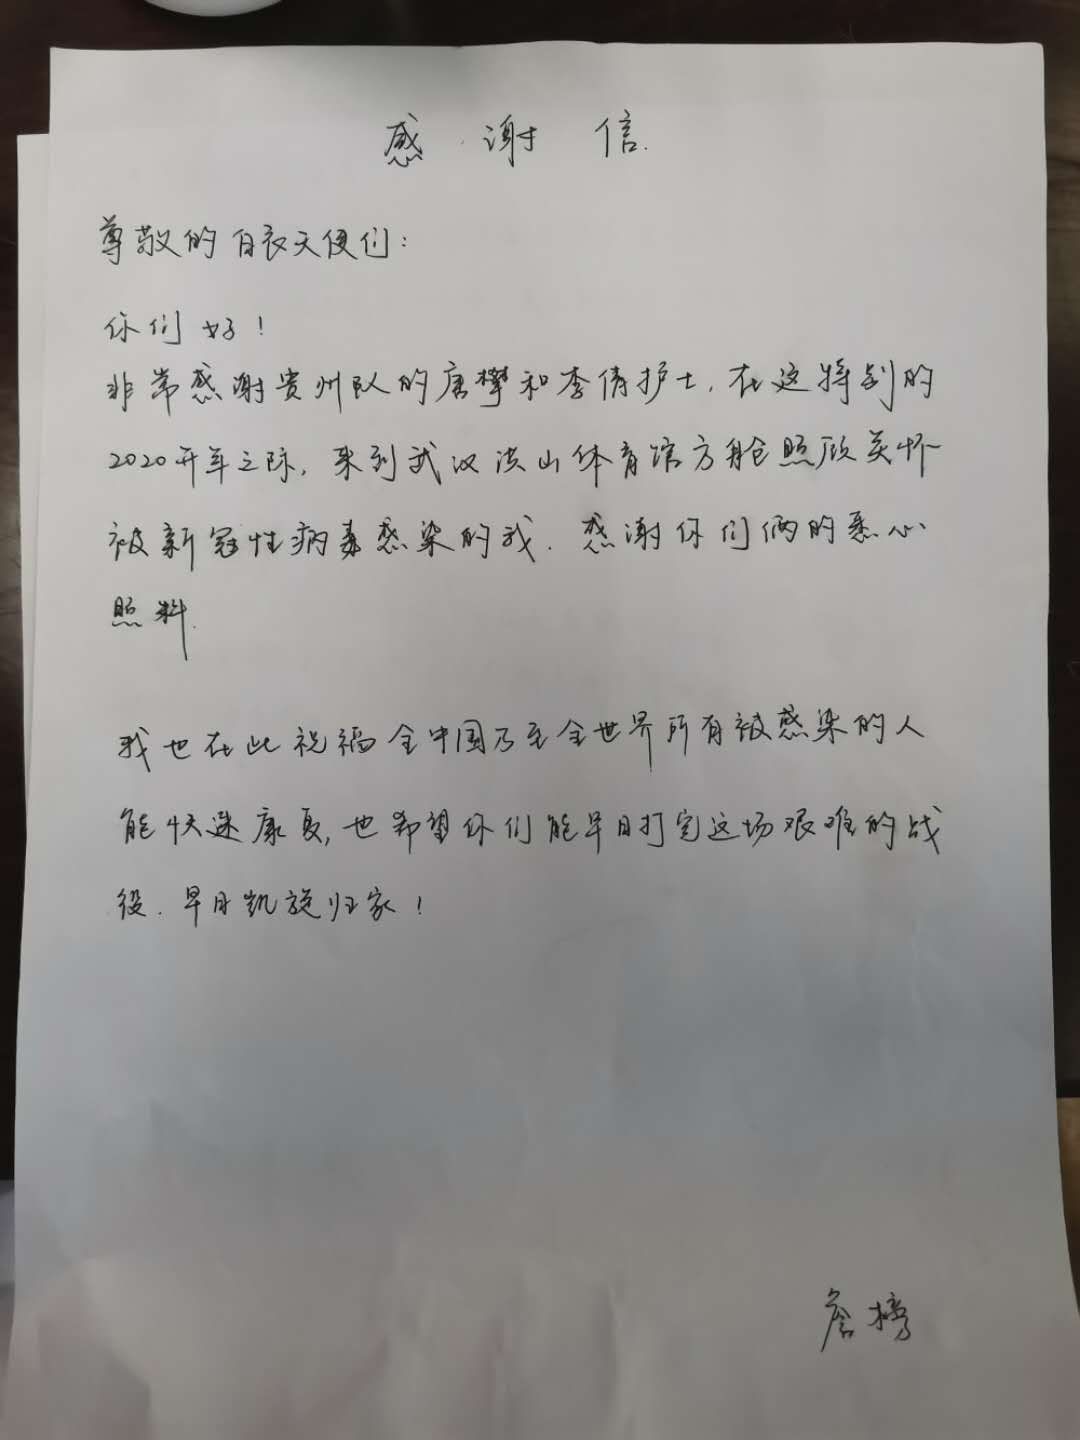 感谢信.
尊敬的白衣天使们:
你们好!
非常感谢贵州队的唐攀和李倩护士,在这特别的
2020开年之际,来到武汉洪山体育馆方舱照顾关怀
被新冠性病毒感染的我.感谢你们俩的悉心
照料.
我也在此祝福全中国乃至全世界所有被感染的人
能快速康复,也希望你们能早日打完这场艰难的战
役.早日凯旋归家!
詹榜